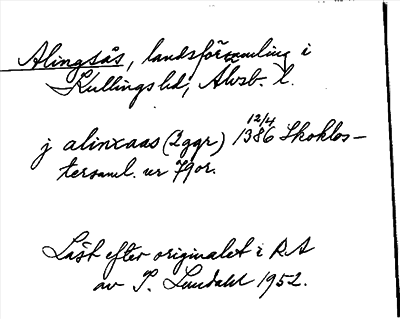 Alingsås, landsförsamling i
Kullings hd, Älvsb. l.
12/4
j alinxaas (2 ggr) 1386 Skoklos-
tersaml. nr 79 or.
Läst efter originalet i RA
av P. Lundahl 1952.